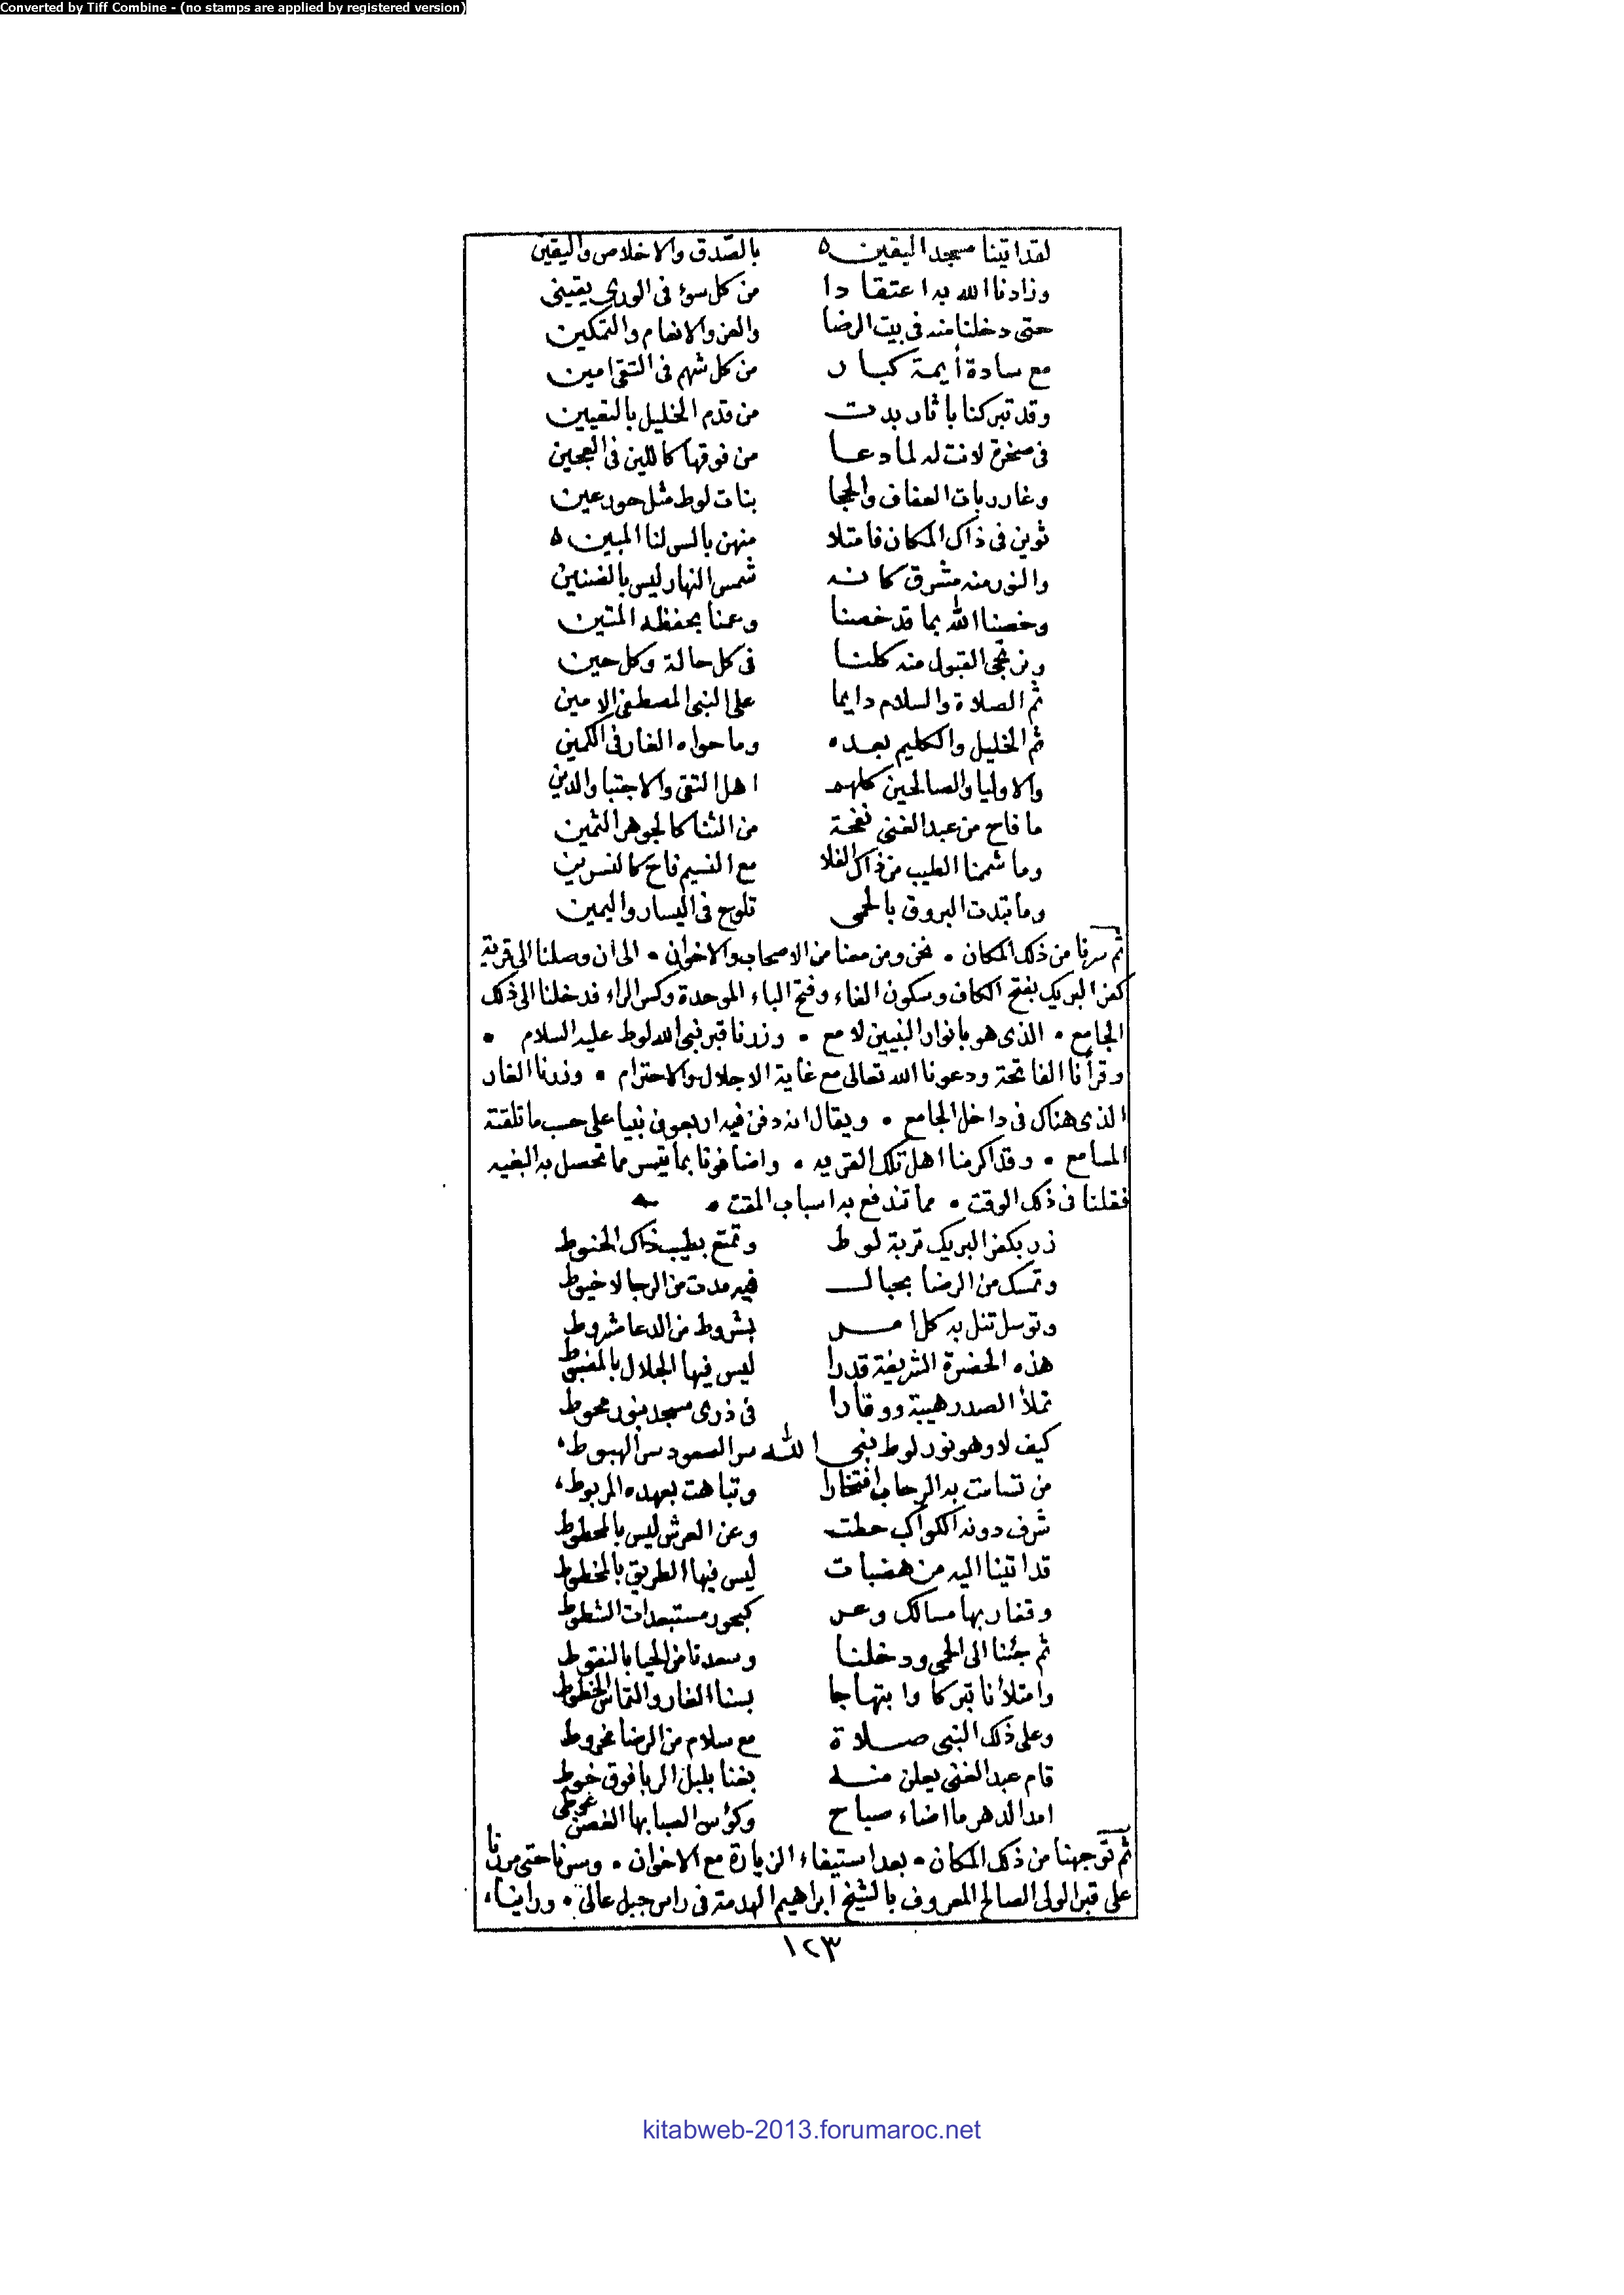 Converted by Tiff Combine - (no stamps are applied by registered version)
لقد اتينا مسجد اليقين ه بالصّدق والاخلاص واليقين
وزادنا الله به اعتقادا من كل سوء فى الورى يقينى
حتى دخلنا منه فى بيت الرضا والعز والانعام والتمكين
مع سادة أيمة كبار من كل شهم فى التقى امين
وقد تبركنا باثار بدت من قدم الخليل بالتعيين
فى صخرة لانت له لما دعا من فوقها كاللين فى العجين
وغار ربات العفاف والحجا بنات لوط مثل حور عين
ثوين فى ذاك المكان فامتلا منهن بالسر لنا المبين ه
والنور منه مشرق كانه شمس النهار ليس بالضنين
وخصنا الله بما قد خصنا وعمنا بحفظه المتين
ونرتجى القبول منه كلنا فى كل حالة وكل حين
ثم الصلاة والسلام دايما على النبى المصطفى الامين
ثم الخليل والكليم بعده وما حواه الغار فى الكمين
والاوليا والصالحين كلهم اهل التقى والاجتبا والدين
ما فاح من عبد الغنى نفحة من الثنا كالجوهر الثمين
وما شممنا الطيب من ذاك الفلا مع النسيم فاح كالنسرين
وما تبدت البروق بالحمى تلوح فى اليسار واليمين
ثم سرنا من ذلك المكان • نحن ومن معنا من الاصحاب والاخوان • الى ان وصلنا الى قرية
كفر البريك بفتح الكاف وسكون الفاء وفتح الباء الموحدة وكسر الراء فدخلنا الى ذلك
الجامع • الذى هو بانوار النبيين لامع • وزرنا قبر نبى الله لوط عليه السلام •
وقرأنا الفاتحة ودعونا الله تعالى مع غاية الاجلال والاحترام • وزرنا الغار
الذى هناك فى داخل الجامع • ويقال انه دفن فيه اربعون نبيا على حسب ما تلقته
المسامع • وقد اكرمنا اهل تلك القريه • واضافونا بما تيسر مما تحصل به البغيه
فقلنا فى ذلك الوقت • مما تندفع به اسباب المقت •
زر بكفر البريك تربة لوط وتمتع بطيب ذاك الحنوط
وتمسك من الرضا بحبال فيه مدت من الرجا لا خيوط
وتوسل تنل به كل امر بشروط من الدعا مشروط
هذه الحضرة الشريفة قدرا ليس فيها الجلال بالمضبوط
تملأ الصدر هيبة ووقارا فى ذرى مسجد بنور محوط
كيف لا وهو نور لوط نبى الله سر الصعود سر الهبوط
من تسامت به الرحاب افتخارا وتباهت بعهده المربوط
شرف دونه الكواكب حطت وعن العرش ليس بالمحطوط
قد اتينا اليه من هضبات ليس فيها الطريق بالمخطوط
وقفار بها مسالك وعر كبحور مستبعدات الشطوط
ثم جئنا الى الحمى ودخلنا وسعدنا من الحيا بالنقوط
وامتلأنا تبركا وابتهاجا بسنا الغار والتماس الخطوط
وعلى ذلك النبى صلاة مع سلام من الرضا مخروط
قام عبد الغنى يعلن منه بغنا بلبل الربا فوق خوط
امد الدهر ما اضاء صباح وكؤس الصبا بها الغصن غوطى
ثم توجهنا من ذلك المكان • بعد استيفاء الزيارة مع الاخوان • وسرنا حتى مررنا
على قبر الولى الصالح المعروف بالشيخ ابراهيم الهدمة فى راس جبل عالى •
١٢٣
kitabweb-2013.forumaroc.net